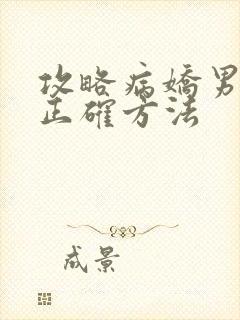 攻略病嬌男
正確方法
成景